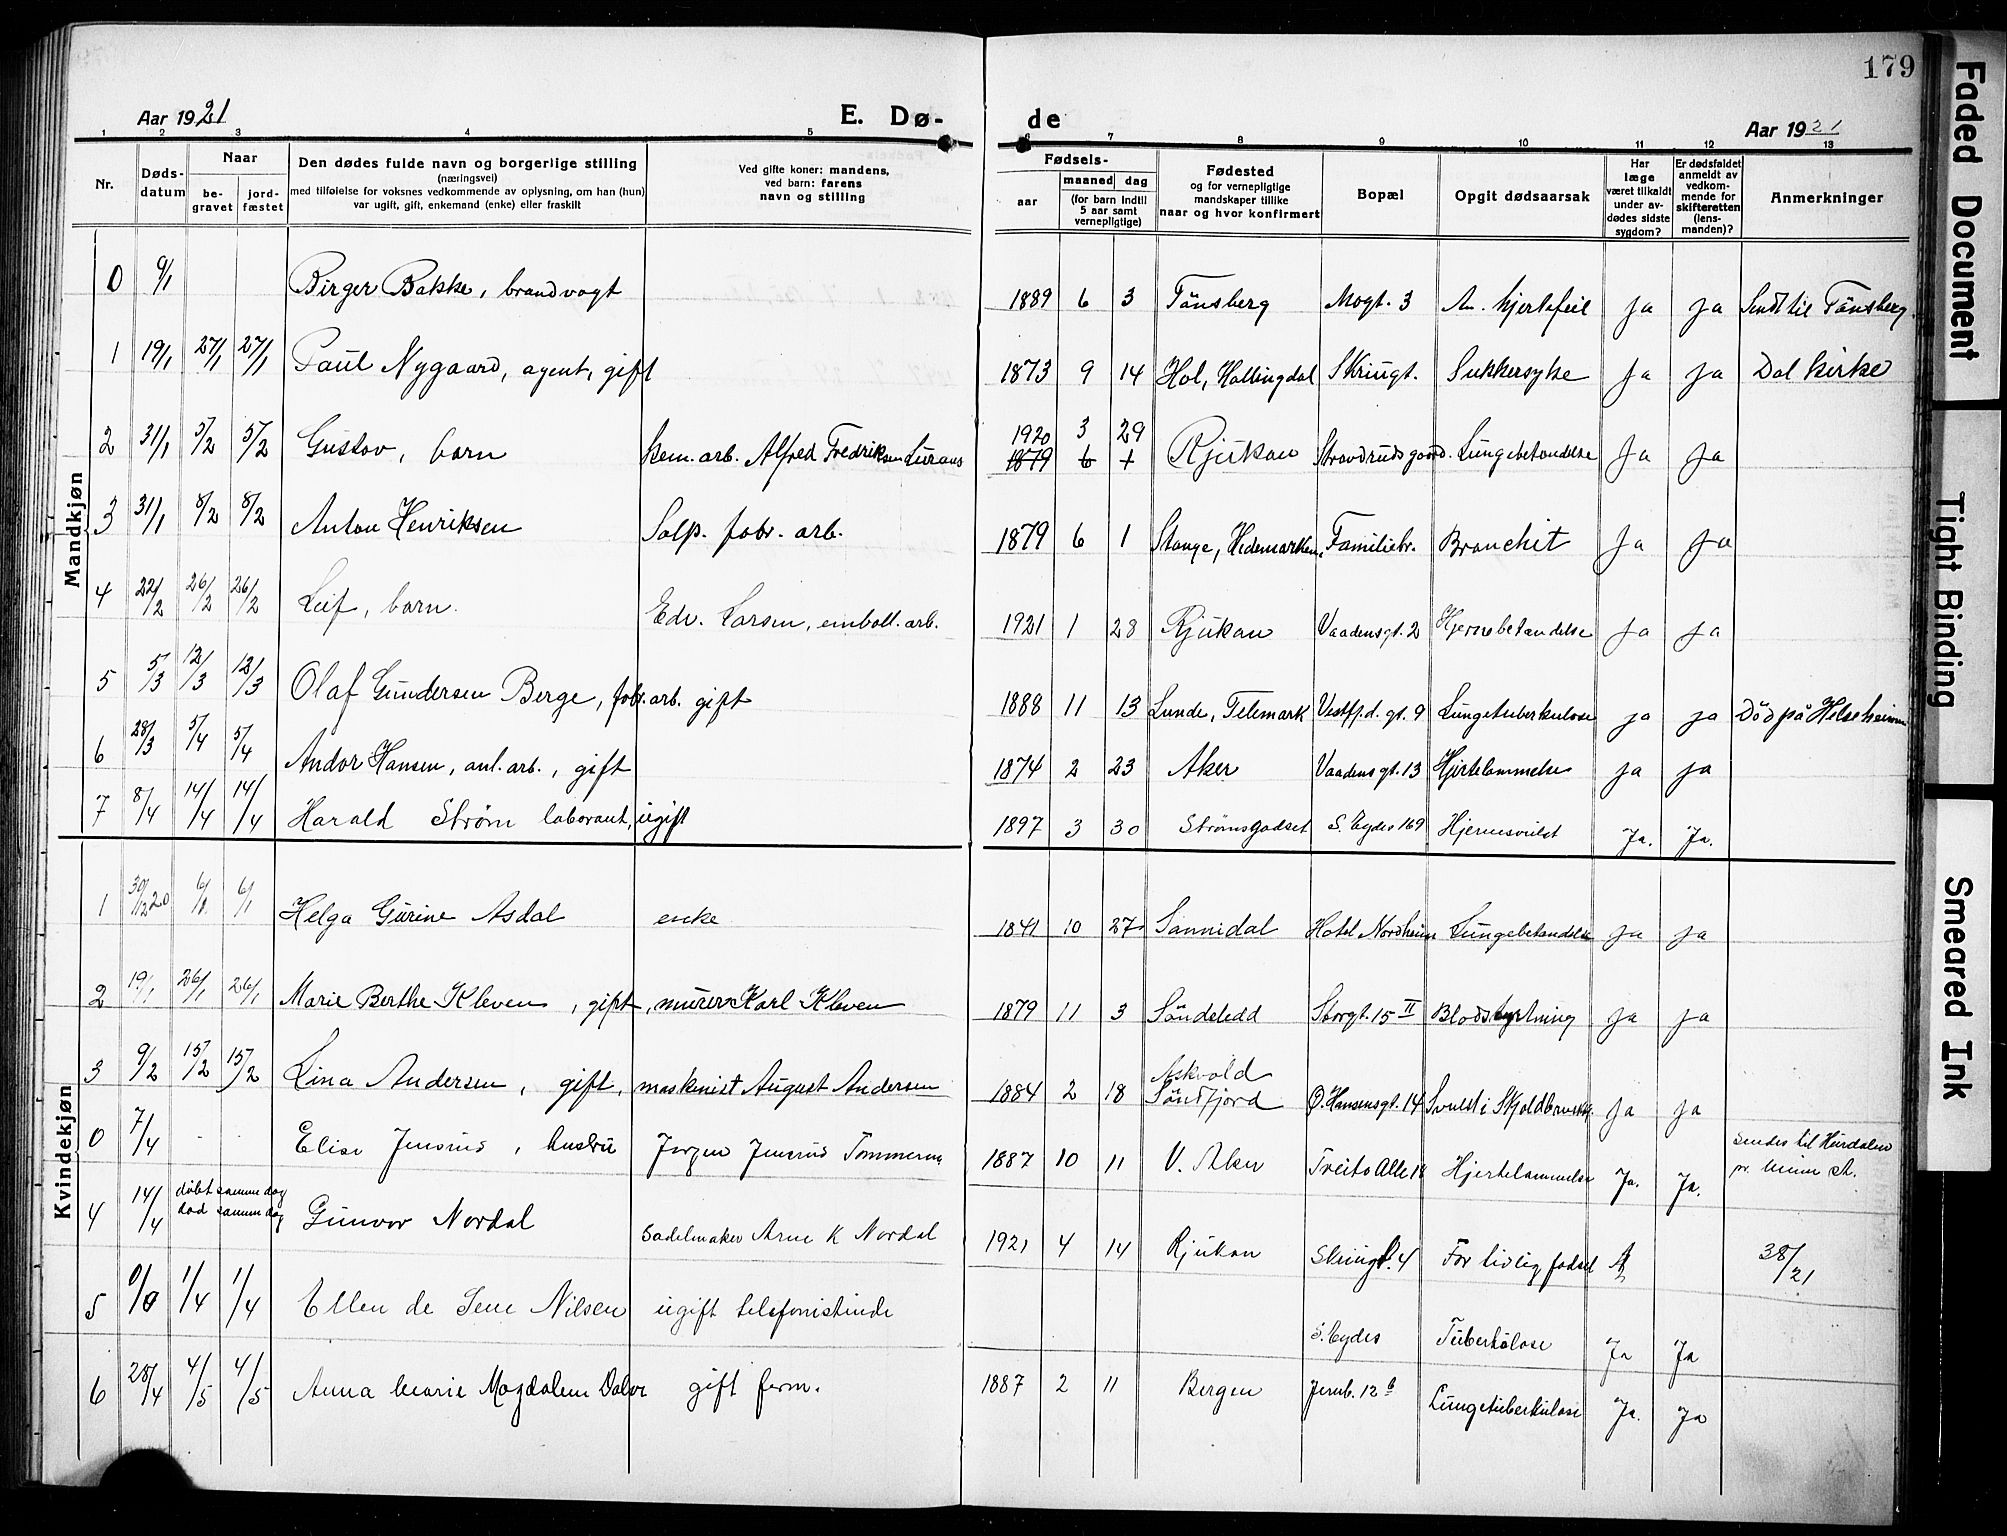 179
Aar 1921
E. Dø-
de
Aar 1921
1 2 3 4 5 6 7 8 9 10 11 12 13
Nr.
Døds-
datum
Naar
be-
gravet
jord-
fæstet
Den dødes fulde navn og borgerlige stilling
(næringsvei)
med tilføielse for voksnes vedkommende av oplysning, om han (hun)
var ugift, gift, enkemand (enke) eller fraskilt
Ved gifte koner: mandens,
ved barn: farens
navn og stilling
Fødsels-
aar
maaned dag
(for barn indtil
5 aar samt
vernepligtige)
Fødested
og for vernepligtige
mandskaper tillike
naar og hvor konfirmert
Bopæl
Opgit dødsaarsak
Har
læge
været tilkaldt
under av-
dødes sidste
sygdom?
Er dødsfaldet
anmeldt av
vedkom-
mende for
skifteretten
(lens-
manden)?
Anmerkninger
Mandkjøn
0 9/1 Birger Bakke, brandvogt 1889 6 3 Tönsberg Mogt. 3 An. hjertefeil Ja Ja Sendt til Tönsberg.
1 19/1 27/1 27/1 Paul Nygaard, agent, gift 1873 9 14 Hol, Hallingdal Skriugt. Sukkersyke Ja Ja Dal kirke
2 31/1 5/2 5/2 Gustav, barn kem. arb. Alfred Fredriksen Luraas 1920 3 29 Rjukan Strandrudsgaard. Lungebetændelse Ja Ja
1879 6 1
3 31/1 8/2 8/2 Anton Henriksen Salp. fabr. arb. 1879 6 1 Stange, Hedemarken, Familiebr. Bronchit Ja Ja
4 22/2 26/2 26/2 Leif, barn. Edv. Larsen, emball. arb. 1921 1 28 Rjukan Vaadensgt. 2 Hjernebetændelse Ja Ja
5 5/3 12/3 12/3 Olaf Gundersen Berge, fabr. arb. gift 1888 11 13 Lunde, Telemark Vestfj.d. gt. 9 Lungetuberkulose ja ja Död på Helseheimen
6 28/3 5/4 5/4 Andor Hansen, anl. arb., gift 1874 2 23 Aker Vaadensgt. 13 Hjertelammelse ja ja
7 8/4 14/4 14/4 Harald Strøm laborant, ugift 1897 3 30 Strømsgodset S. Eydes 169 Hjernesvulst Ja. Ja.
Kvindekjøn
1 30/12 20 6/1 6/1 Helga Gurine Asdal enke 1841 10 27 Sannidal Hotel Nordheim Lungebetændelse Ja Ja
2 19/1 26/1 26/1 Marie Berthe Kleven, gift, murer Karl Kleven 1879 11 3 Söndeledd Storgt. 15 II Blodstyrtning Ja Ja
3 9/2 15/2 15/2 Lina Andersen, gift, maskinist August Andersen 1884 2 18 Askvold Söndfjord O. Hansensgt. 14 Svulst i Skjoldbruskkj. Ja Ja
0 7/4 Elise Jensrus, hustru Jørgen Jensrus Tømmerm. 1887 10 11 V. Aker Treito Alle 18 Hjertelammelse Ja. Ja. Sendes til Hurdalen
4 14/4 døbt samme dag
død samme dag Gunvor Nordal Sadelmaker Arne K Nordal 1921 4 14 Rjukan Skriugt. 4 For tidlig fødsel 38/21
5 1/4 1/4 Ellen de Sene Nilsen ugift telefonistinde S. Eydes Tuberkulose Ja Ja
6 28/4 4/5 4/5 Anna Marie Magdalene gift form. 1887 2 11 Bergen Jernb. 12 b Lungetuberkulose Ja. Ja
Faded Document
Tight Binding
Smeared Ink